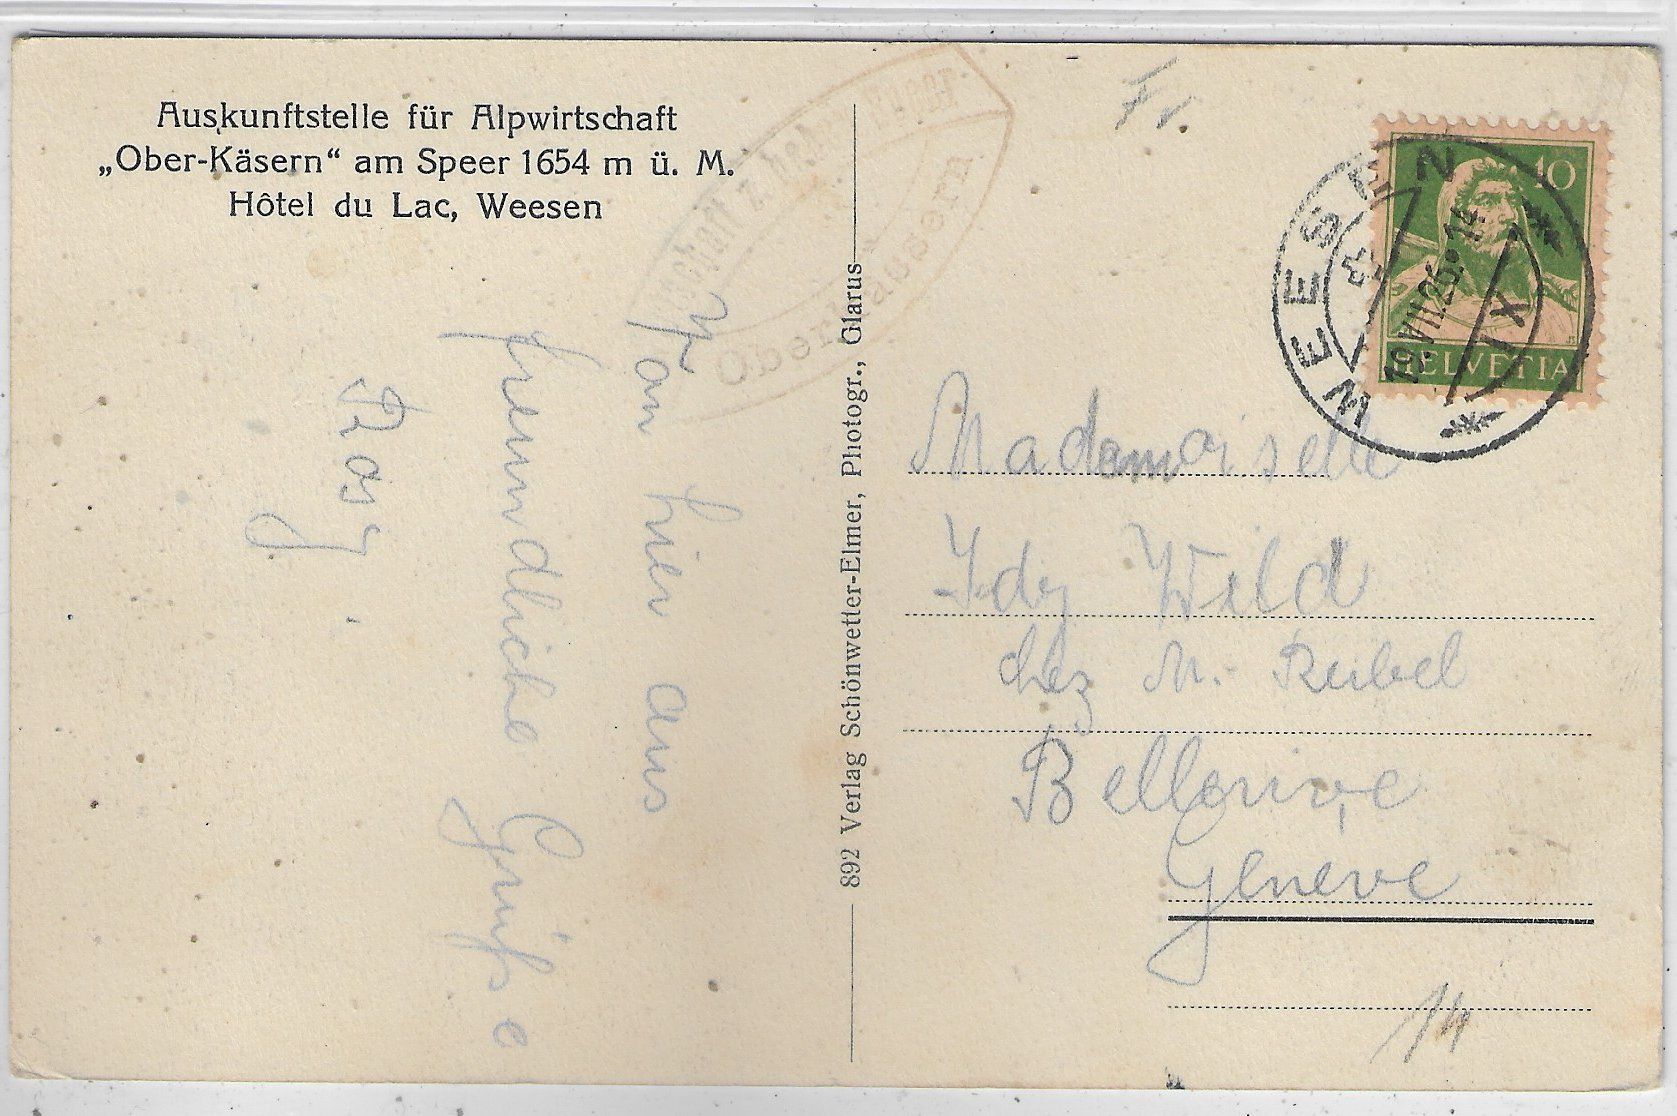 Auskunftstelle für Alpwirtschaft
„Ober-Käsern“ am Speer 1654 m ü. M.
Hôtel du Lac, Weesen
Von hier aus
freundliche Grüsse
Rosy.
892 Verlag Schönwetter-Elmer, Photogr., Glarus
Fr.
10
HELVETIA
WEESEN
19.VII.26.
IX
Mademoiselle
Idy Wild
chez M. Reibel
Bellerive
Geneve
Oberkäsern